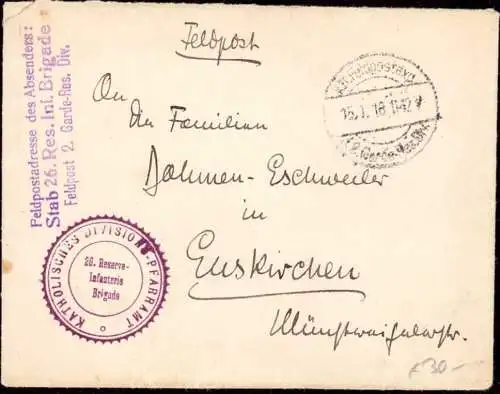 Feldpost
Feldpostadresse des Absenders:
Stab 26. Res. Inf. Brigade
Feldpost 2. Garde-Res. Div.
15.1.18 11-12 V
An
die Familien
Dahmen-Eschweiler
in
Euskirchen
Münstereifelerstr.
KATHOLISCHES DIVISIONS-PFARRAMT
26. Reserve-
Infanterie
Brigade
30-